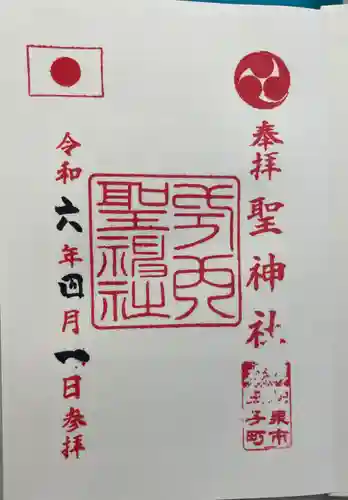 奉拝 聖神社
聖神社
泉市
王子町
令和六年四月一日参拝